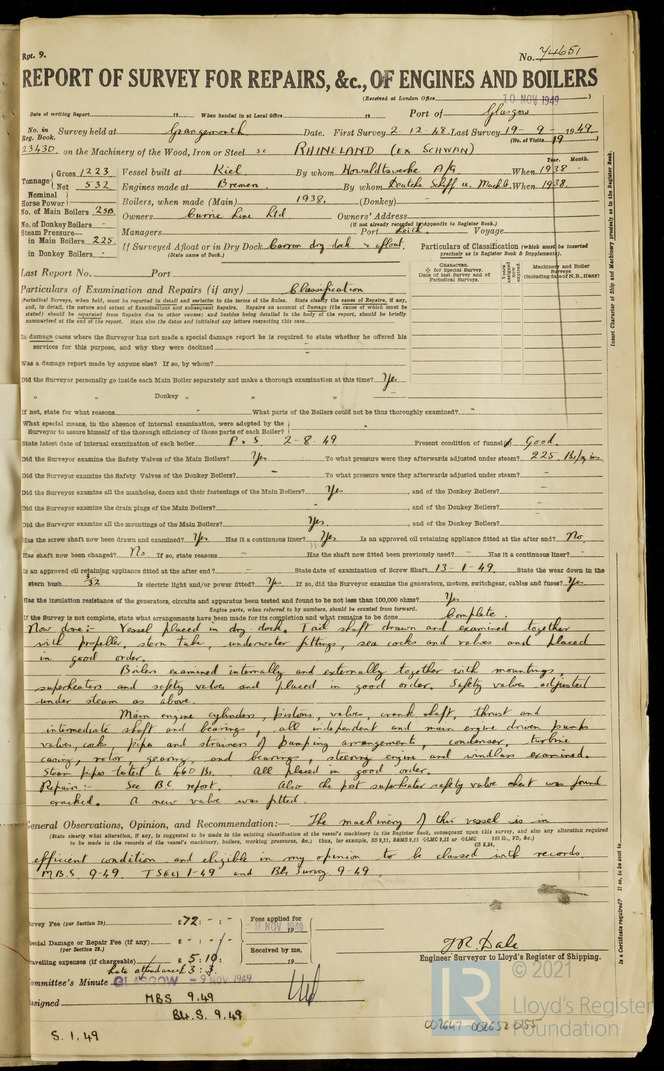 Rpt. 9.
No. 74651
REPORT OF SURVEY FOR REPAIRS, &c., OF ENGINES AND BOILERS
(Received at London Office 10 NOV 1949)
Date of writing Report 19 When handed in at Local Office 19 Port of Glasgow
No. in Reg. Book. Survey held at Grangemouth Date. First Survey 2-12-48 Last Survey 19-9-1949
(No. of Visits 19)
23430 on the Machinery of the Wood, Iron or Steel sc RHINELAND (EX SCHWAN)
Tonnage Gross 1223 Vessel built at Kiel By whom Howaldtswerke A/G. When 1938
Net 532 Engines made at Bremen By whom Deutsche Schiff u. Machb. When 1938
Nominal Horse Power Boilers, when made (Main) 1938. (Donkey) -
No. of Main Boilers 2SB Owners Currie Line Ltd Owners' Address
(if not already recorded in Appendix to Register Book.)
No. of Donkey Boilers - Managers Port Leith Voyage
Steam Pressure in Main Boilers 225 If Surveyed Afloat or in Dry Dock Carron dry dock & afloat
in Donkey Boilers - (State name of Dock.)
Particulars of Classification (which must be inserted precisely as in Register Book & Supplements).
Last Report No. Port
Particulars of Examination and Repairs (if any) Classification
(Periodical Surveys, when held, must be reported in detail and seriatim in the terms of the Rules. State clearly the cause of Repairs, if any,
and, in detail, the nature and extent of Examinations and subsequent Repairs. Repairs on account of Damage (the cause of which must be
stated) should be separated from Repairs due to other causes; and besides being detailed in the body of the report, should be briefly
summarised at the end of the report. State also the dates and initials of any letters respecting this case.
In damage cases where the Surveyor has not made a special damage report he is required to state whether he offered his
services for this purpose, and why they were declined -
Was a damage report made by anyone else? If so, by whom? -
Did the Surveyor personally go inside each Main Boiler separately and make a thorough examination at this time? Yes
" " Donkey " " " -
If not, state for what reasons - What parts of the Boilers could not be thus thoroughly examined? -
What special means, in the absence of internal examination, were adopted by the
Surveyor to assure himself of the thorough efficiency of those parts of each Boiler? -
State latest date of internal examination of each boiler P. S. 2-8-49 Present condition of funnel Good.
Did the Surveyor examine the Safety Valves of the Main Boilers? Yes To what pressure were they afterwards adjusted under steam? 225 lbs/sq.ins
Did the Surveyor examine the Safety Valves of the Donkey Boilers? - To what pressure were they afterwards adjusted under steam? -
Did the Surveyor examine all the manholes, doors and their fastenings of the Main Boilers? Yes, and of the Donkey Boilers? -
Did the Surveyor examine the drain plugs of the Main Boilers? -, and of the Donkey Boilers? -
Did the Surveyor examine all the mountings of the Main Boilers? Yes, and of the Donkey Boilers? -
Has the screw shaft now been drawn and examined? Yes Has it a continuous liner? Yes Is an approved oil retaining appliance fitted at the after end? No.
Has shaft now been changed? No If so, state reasons - Has the shaft now fitted been previously used? - Has it a continuous liner? -
Is an approved oil retaining appliance fitted at the after end? - State date of examination of Screw Shaft 13-1-49 State the wear down in the
stern bush 3/32 Is electric light and/or power fitted? Yes If so, did the Surveyor examine the generators, motors, switchgear, cables and fuses? Yes
Has the insulation resistance of the generators, circuits and apparatus been tested and found to be not less than 100,000 ohms? Yes
Engine parts, when referred to by numbers, should be counted from forward.
If the Survey is not complete, state what arrangements have been made for its completion and what remains to be done Complete
Now done:- Vessel placed in dry dock. Tail shaft drawn and examined together
with propeller, stern tube, underwater fittings, sea cocks and valves and placed
in good order.
Boilers examined internally and externally together with mountings,
superheaters and safety valves and placed in good order. Safety valves adjusted
under steam as above.
Main engine cylinders, pistons, valves, crank shaft, thrust and
intermediate shaft and bearings, all independent and main engine driven pumps
valves, cocks, pipes and strainers of pumping arrangements, condenser, turbine
casing, rotor gearing, and bearings, steering engine and windlass examined.
Steam pipes tested to 460 lbs. All placed in good order.
Repairs:- See BC report. Also the port superheater safety valve chest was found
cracked. A new valve was fitted.
General Observations, Opinion, and Recommendation:- The machinery of this vessel is in
(State clearly what alteration, if any, is suggested to be made in the existing classification of the vessel's machinery in the Register Book, consequent upon this survey, and also any alteration required
to be made in the records of the vessel's machinery, boilers, working pressures, &c.)
efficient condition and eligible in my opinion to be classed with records
M.B.S. 9-49 TS(CL) 1-49 and Bls Survey 9-49.
Survey Fee (per Section 29) £72 : - : -
Fees applied for 9 NOV 1949
Special Damage or Repair Fee (if any) £ - : - : -
(per Section 29.)
Received by me, 19
Travelling expenses (if chargeable) £ 5 : 10 :
Late attendance £ 3 : 3.
J.R. Dale
Engineer Surveyor to Lloyd's Register of Shipping.
Committee's Minute GLASGOW - 9 NOV 1949
Assigned MBS 9.49
BLr.S. 9.49
S. 1.49
Insert Character of Ship and Machinery precisely as in the Register Book.
Is a Certificate required? If so, to be sent to
© 2021
LR
Lloyd's Register
Foundation